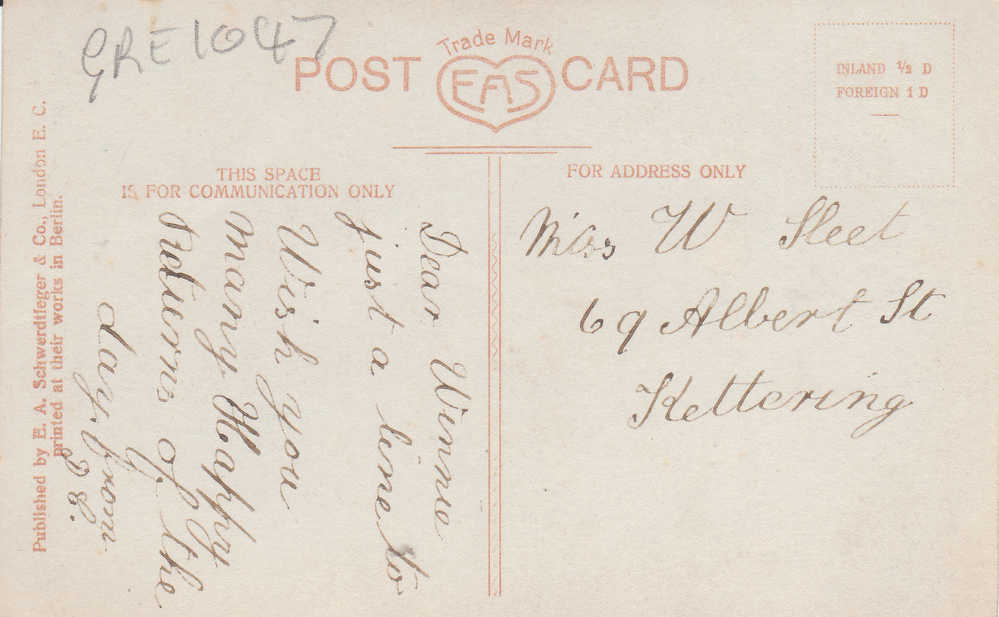 GRE1047
Trade Mark
POST EAS CARD
INLAND ½ D
FOREIGN 1 D
THIS SPACE
IS FOR COMMUNICATION ONLY
FOR ADDRESS ONLY
Dear Winnie
just a line to
Wish you
many Happy
Returns of the
day. from
Miss W Sleet
69 Albert St
Kettering
Published by E. A. Schwerdtfeger & Co., London E. C.
printed at their works in Berlin.